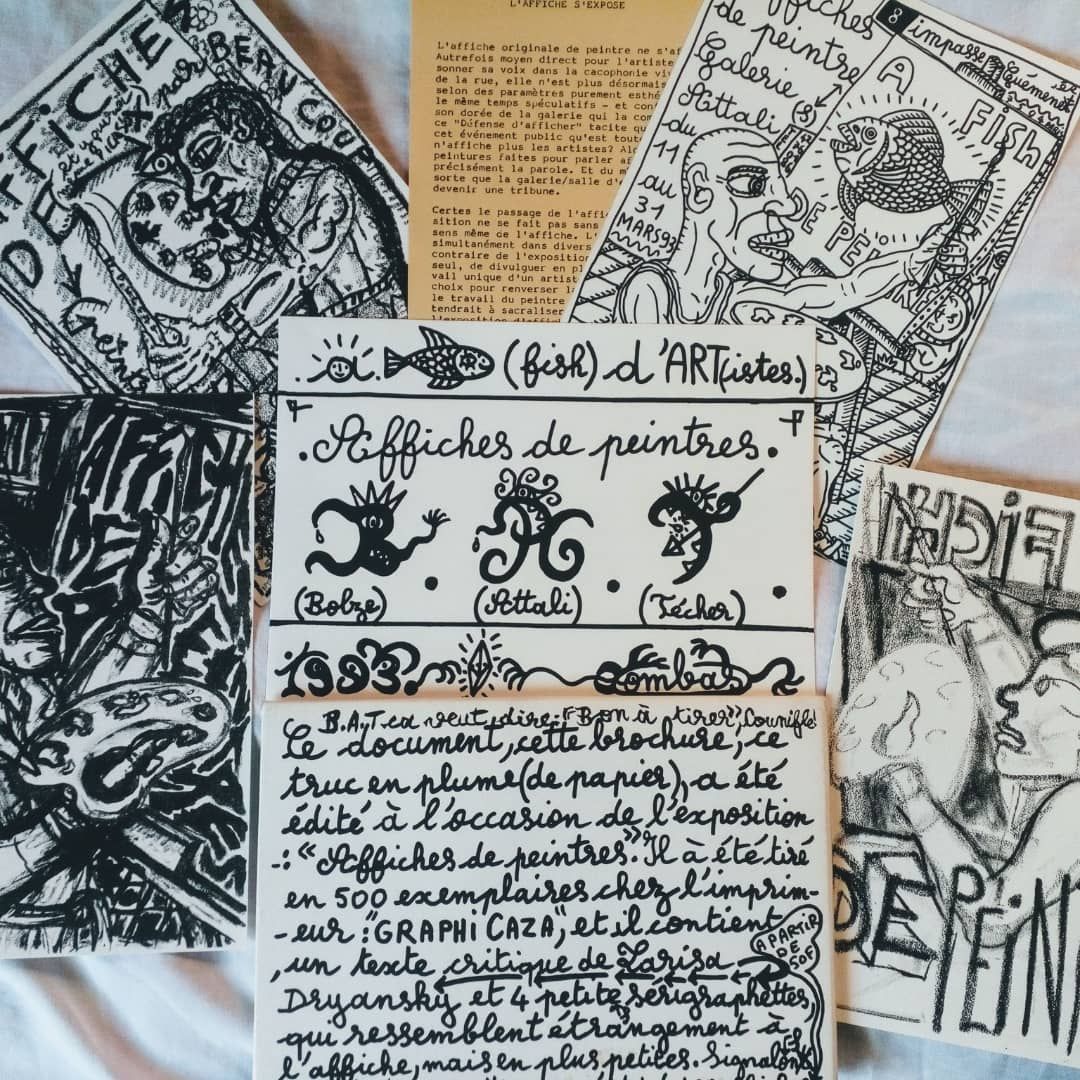 AFFICHE
DE
BEAUCOUP
L'AFFICHE S'EXPOSE
L'affiche originale de peintre ne s'af
Autrefois moyen direct pour l'artiste
sonner sa voix dans la cacophonie vi
de la rue, elle n'est plus désormais
selon des paramètres purement esthé
le même temps spéculatifs - et con
son dorée de la galerie qui la com
ce "Défense d'afficher" tacite qu
cet événement public qu'est tout
n'affiche plus les artistes? Al
peintures faites pour parler af
précisément la parole. Et du m
sorte que la galerie/salle d'
devenir une tribune.
Certes le passage de l'affi
sition ne se fait pas sans
sens même de l'affiche. L'
simultanément dans divers
contraire de l'exposition
seul, de divulguer en pl
vail unique d'un artist
choix pour renverser l
le travail du peintre
tendrait à sacraliser
ffiches
de peintre
Galerie
Attali
du
11
au
31
MARS 93
8 impasse Guéménée
A FISH
DE PEI
a (fish) d'ART(istes.)
.Affiches de peintres.
(Bobze) (Attali) (Técher)
1993. Combas
B.A.T. ça veut dire: "Bon à tirer", Counifle!
Ce document, cette brochure, ce
truc en plume (de papier), a été
édité à l'occasion de l'exposition
-: "Affiches de peintres". Il à été tiré
en 500 exemplaires chez l'imprim-
-eur: "GRAPHI CAZA", et il contient
, un texte critique de Larisa
Dryansky et 4 petite sérigraphettes,
qui ressemblent étrangement à
l'affiche, mais en plus petites. Signalons
A PARTIR
DE
50F
AFFICH
DE
FICH
DE PEIN